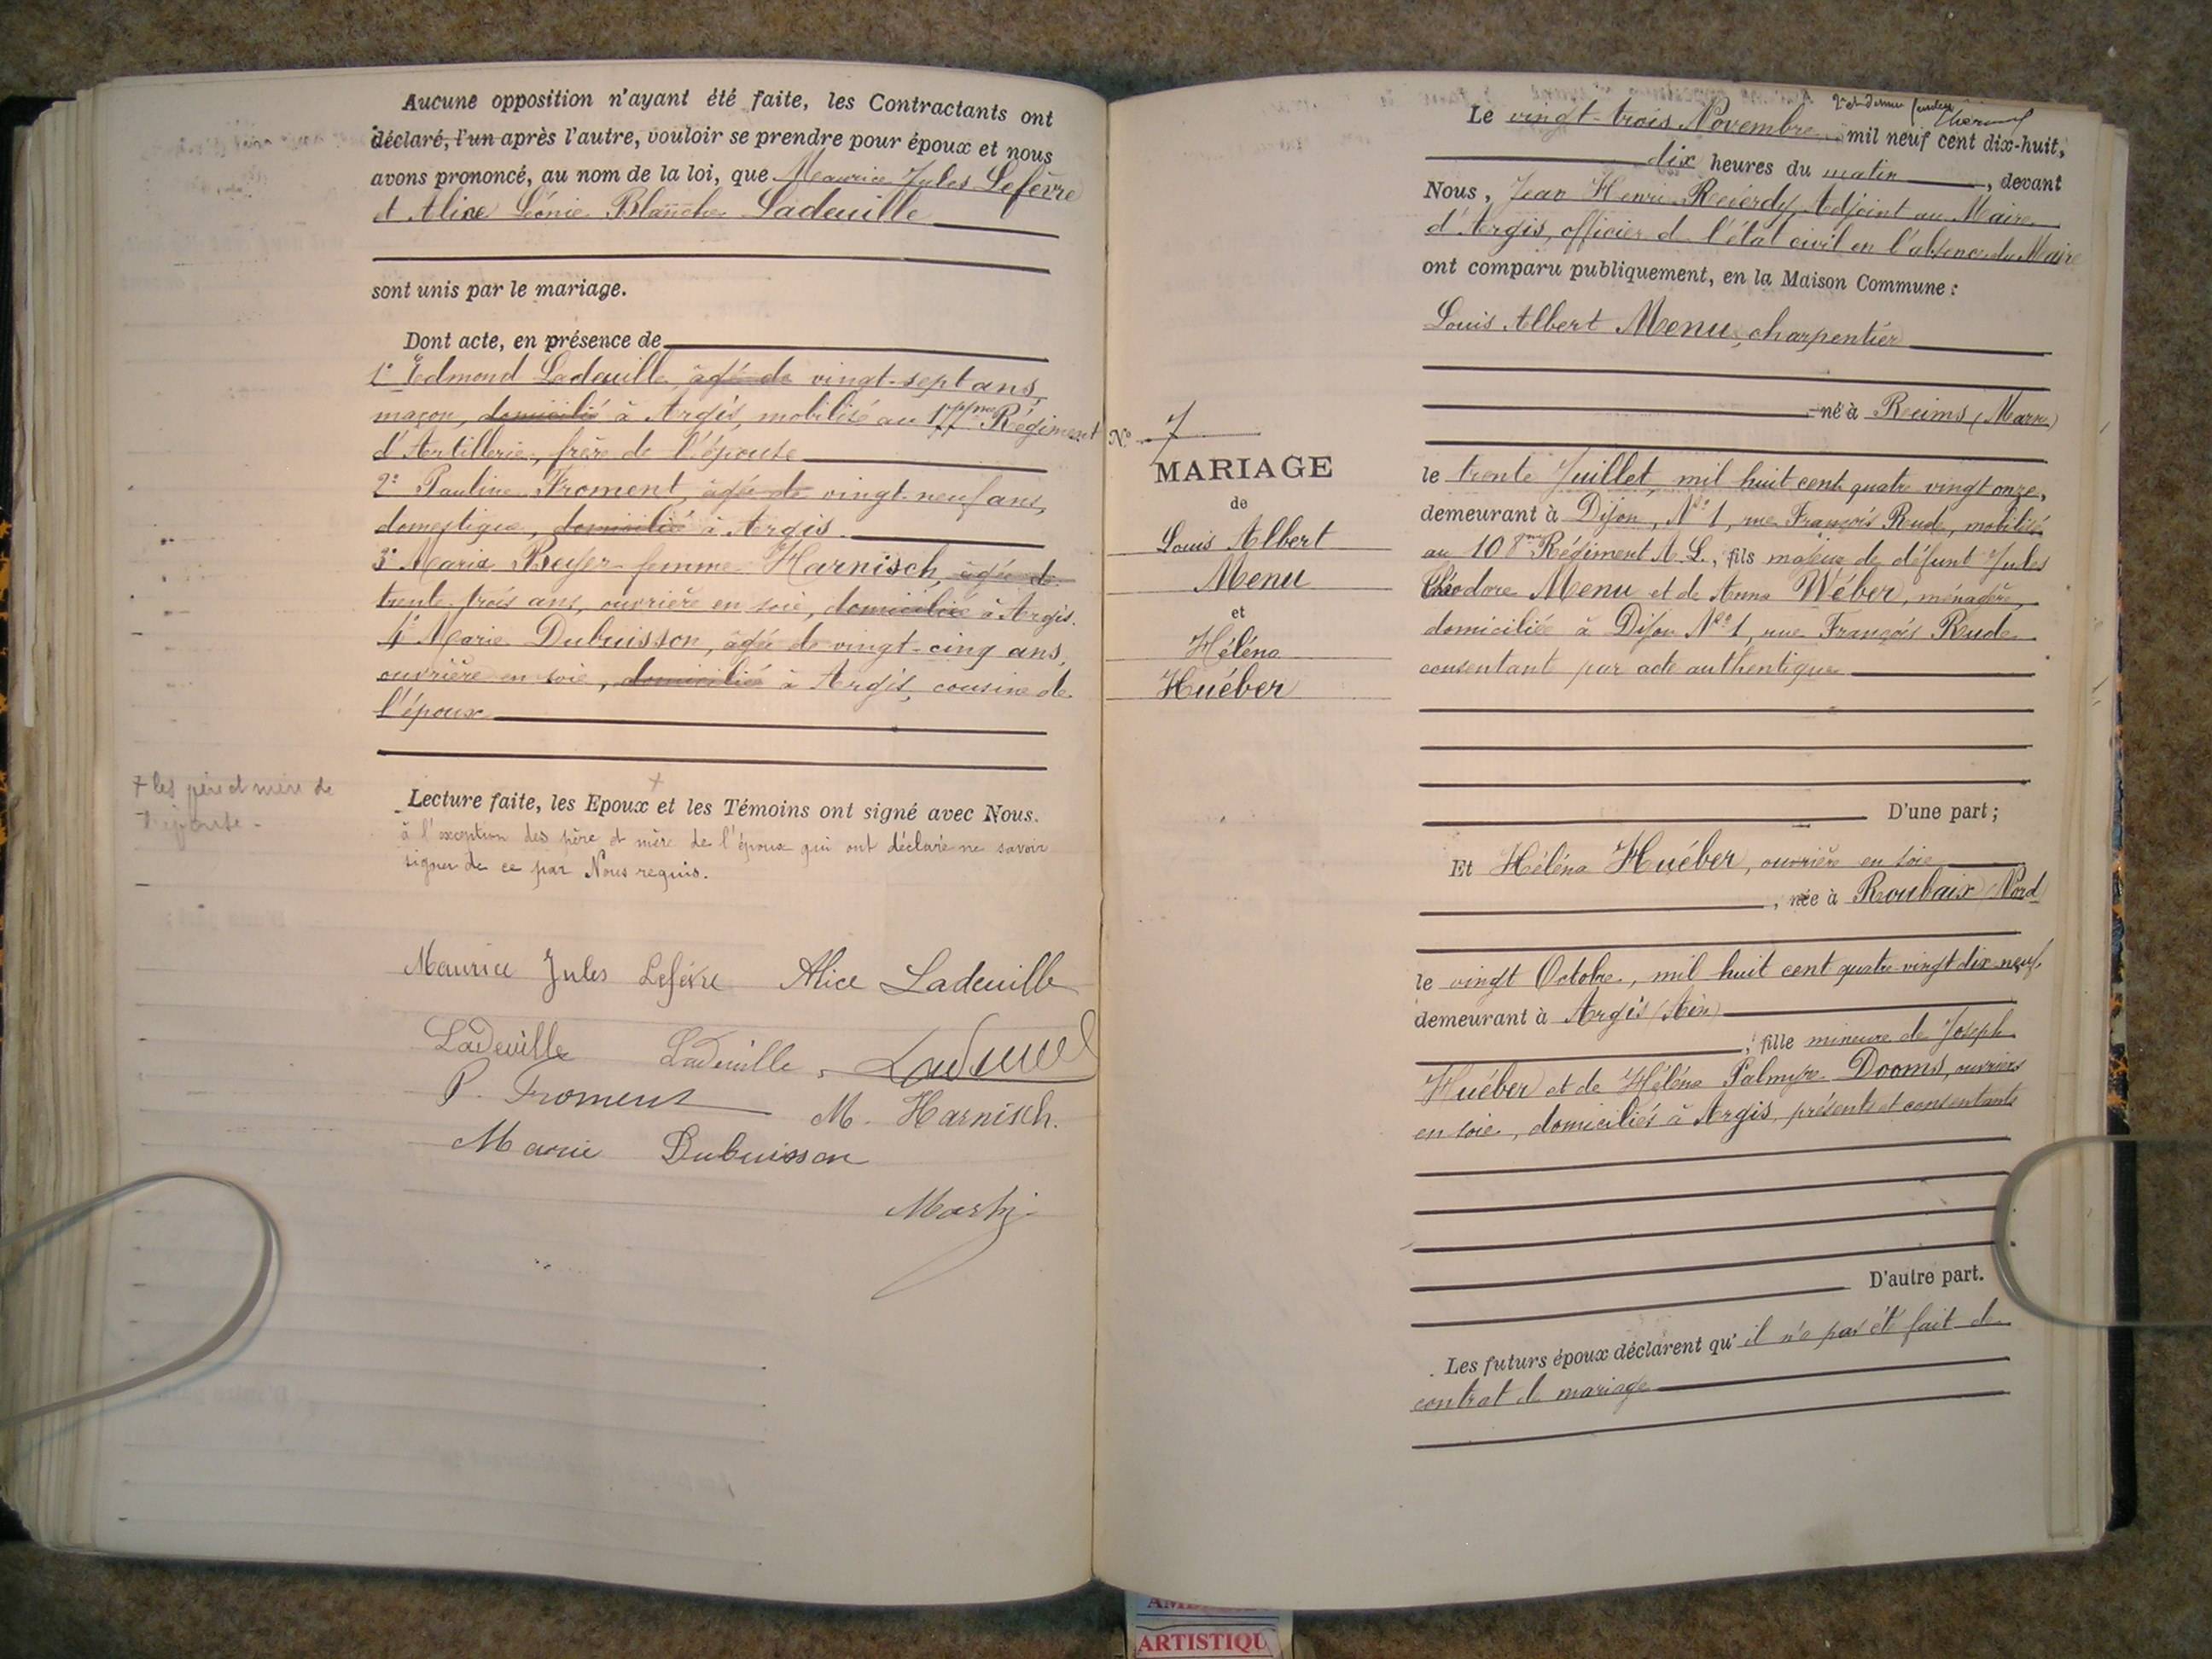 Aucune opposition n'ayant été faite, les Contractants ont
déclaré, l'un après l'autre, vouloir se prendre pour époux et nous
avons prononcé, au nom de la loi, que Maurice Jules Lefèvre
et Aline Léonie Blanche Ladeuille
sont unis par le mariage.
Dont acte, en présence de
1° Edmond Ladeuille âgée de vingt-sept ans,
maçon, domicilié à Argis, mobilisé au 177me Régiment
d'Artillerie, frère de l'épouse
2° Pauline Froment, âgée de vingt-neuf ans,
domestique, domicilié à Argis
3° Maria Reyser femme Harnisch, âgée de
trente-trois ans, ouvrière en soie, domiciliée à Argis.
4° Marie Dubuisson, âgée de vingt-cinq ans,
ouvrière en soie, domicilié à Argis, cousine de
l'époux
+ les père et mère de
l'épouse -
Lecture faite, les Epoux + et les Témoins ont signé avec Nous.
à l'exception des père et mère de l'époux qui ont déclaré ne savoir
signer de ce par Nous requis.
Maurice Jules Lefèvre Alice Ladeuille
Ladeuille Ladeuille Ladeuille
P. Froment M. Harnisch.
Marie Dubuisson
N° 7
MARIAGE
de
Louis Albert
Menu
et
Héléna
Huéber
Le vingt-trois Novembre mil neuf cent dix-huit,
dix heures du matin, devant
Nous, Jean Henri Reverdy, Adjoint au Maire
d'Argis, officier de l'état civil en l'absence du Maire
ont comparu publiquement, en la Maison Commune :
Louis Albert Menu, charpentier
né à Reims (Marne)
le trente Juillet, mil huit cent quatre vingt onze,
demeurant à Dijon, No 1, rue François Rude, mobilisé
au 108me Régiment A. L., fils majeur de défunt Jules
Théodore Menu et de Anna Wéber, ménagère,
domiciliée à Dijon No 1, rue François Rude
consentant par acte authentique
D'une part ;
Et Héléna Huéber, ouvrière en soie
, née à Roubaix (Nord)
le vingt Octobre, mil huit cent quatre-vingt dix-neuf,
demeurant à Argis (Ain)
, fille mineure de Joseph
Huéber et de Héléna Palmyre Dooms, ouvriers
en soie, domiciliés à Argis, présents et consentants
D'autre part.
Les futurs époux déclarent qu'il n'a pas été fait de
contrat de mariage
ARTISTIQU